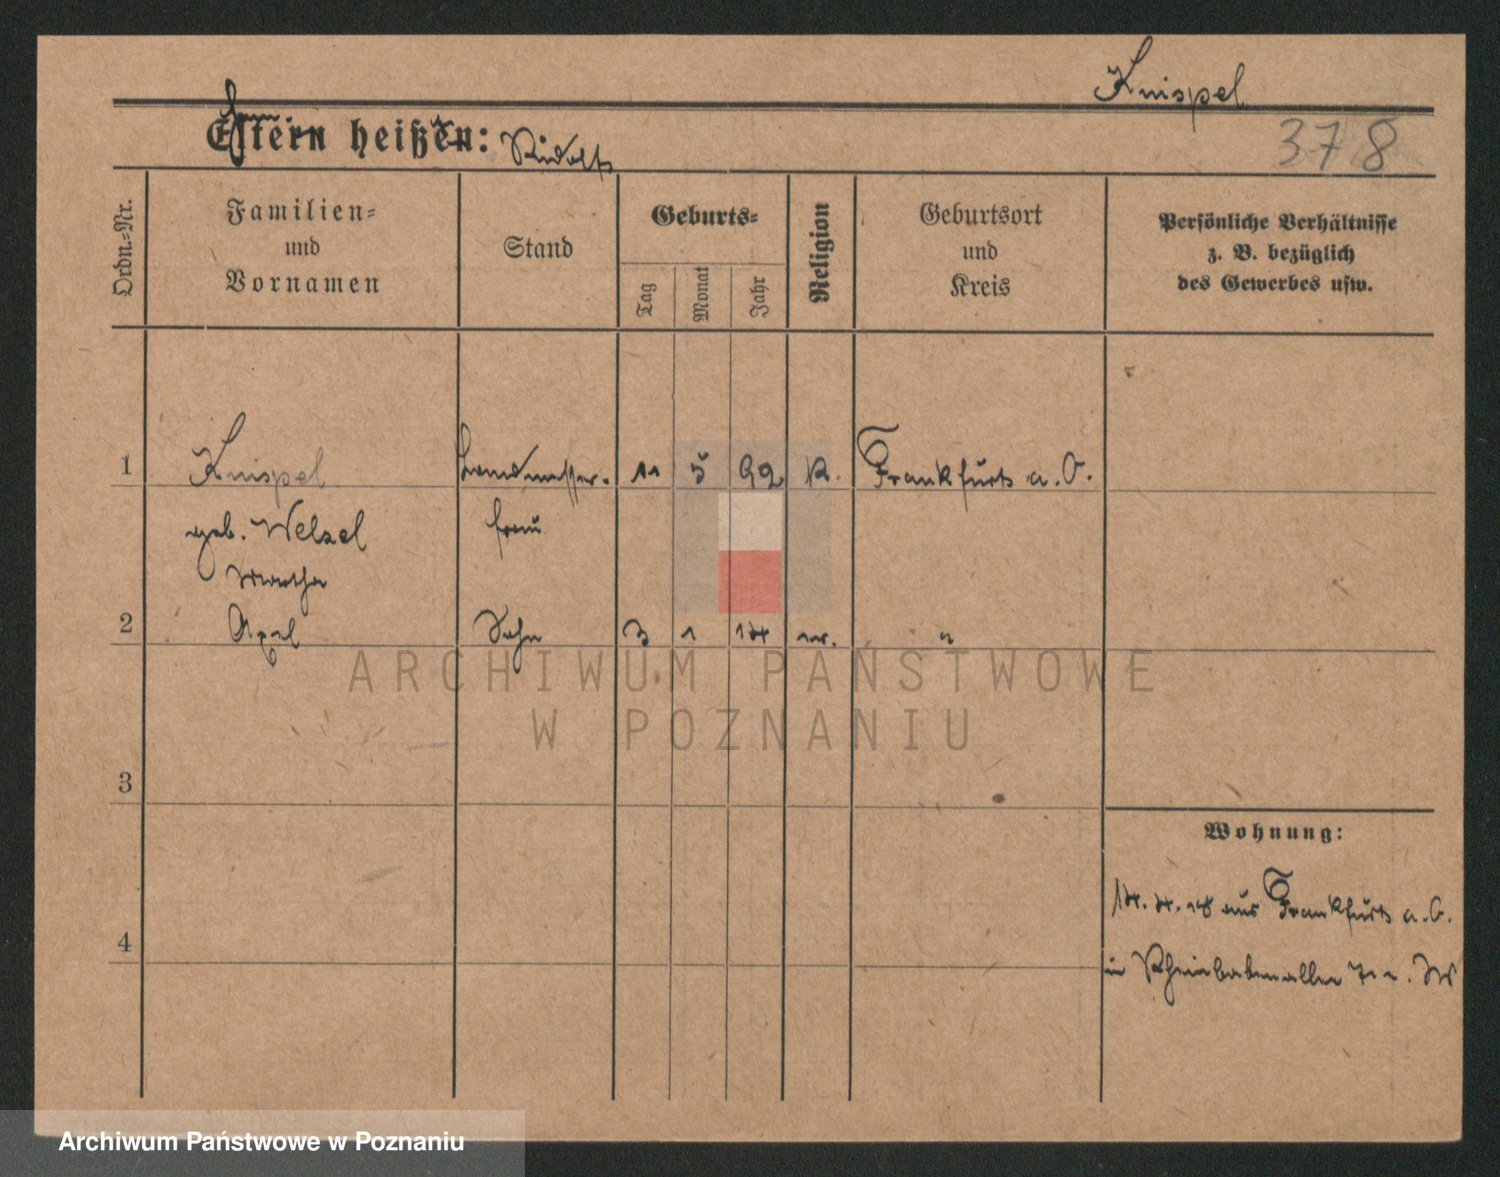 Knispel
Eltern heißen: Rudolf
378
Ordn.-Nr.
Familien-
und
Vornamen
Stand
Geburts-
Tag
Monat
Jahr
Religion
Geburtsort
und
Kreis
Persönliche Verhältnisse
z. B. bezüglich
des Gewerbes usw.
1 Knispel Landmesser- 11 5 92 K. Frankfurt a. O.
geb. Welzel frau
Martha
2 Axel Sohn 3 1 14 "
ARCHIWUM PAŃSTWOWE
W POZNANIU
3
Wohnung:
14. 4. 18 aus Frankfurt a. O.
4
in Rheinbabenallee
Archiwum Państwowe w Poznaniu